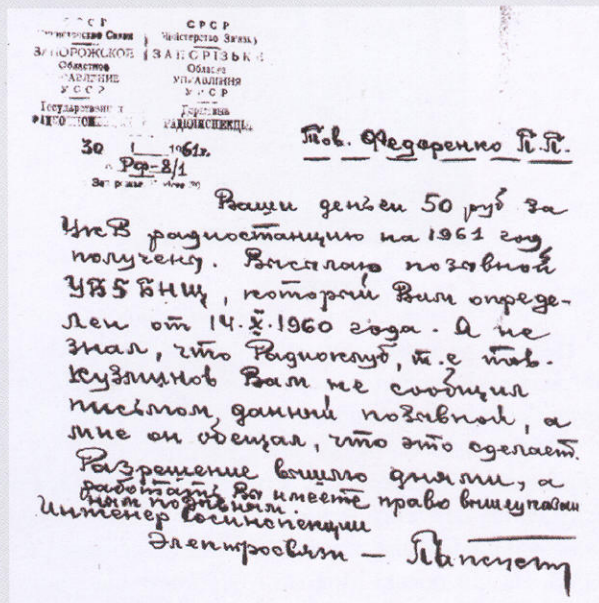 СССР
Министерство Связи
ЗАПОРОЖСКОЕ
Областное
УПРАВЛЕНИЕ
УССР
Государственная
РАДИОИНСПЕКЦИЯ
СРСР
Міністерство Зв'язку
ЗАПОРІЗЬКЕ
Обласне
УПРАВЛІННЯ
УРСР
Державна
РАДІОІНСПЕКЦІЯ
30 I 1961г.
РФ-8/1
Тов. Федоренко П.П.
Ваши деньги 50 руб за
УКВ радиостанцию на 1961 год
получены. Высылаю позывной
УБ5БНЩ, который Вам опреде-
лен от 14.X.1960 года. А не
знал, что Радиоклуб, т.е тов.
Кузминов Вам не сообщил
письмом, данный позывной, а
мне он обещал, что это сделает.
Разрешение вышлю днями, а
работать Вы имеете право вышеуказан
ным позывным.
Инженер Госинспекции
Электросвязи —